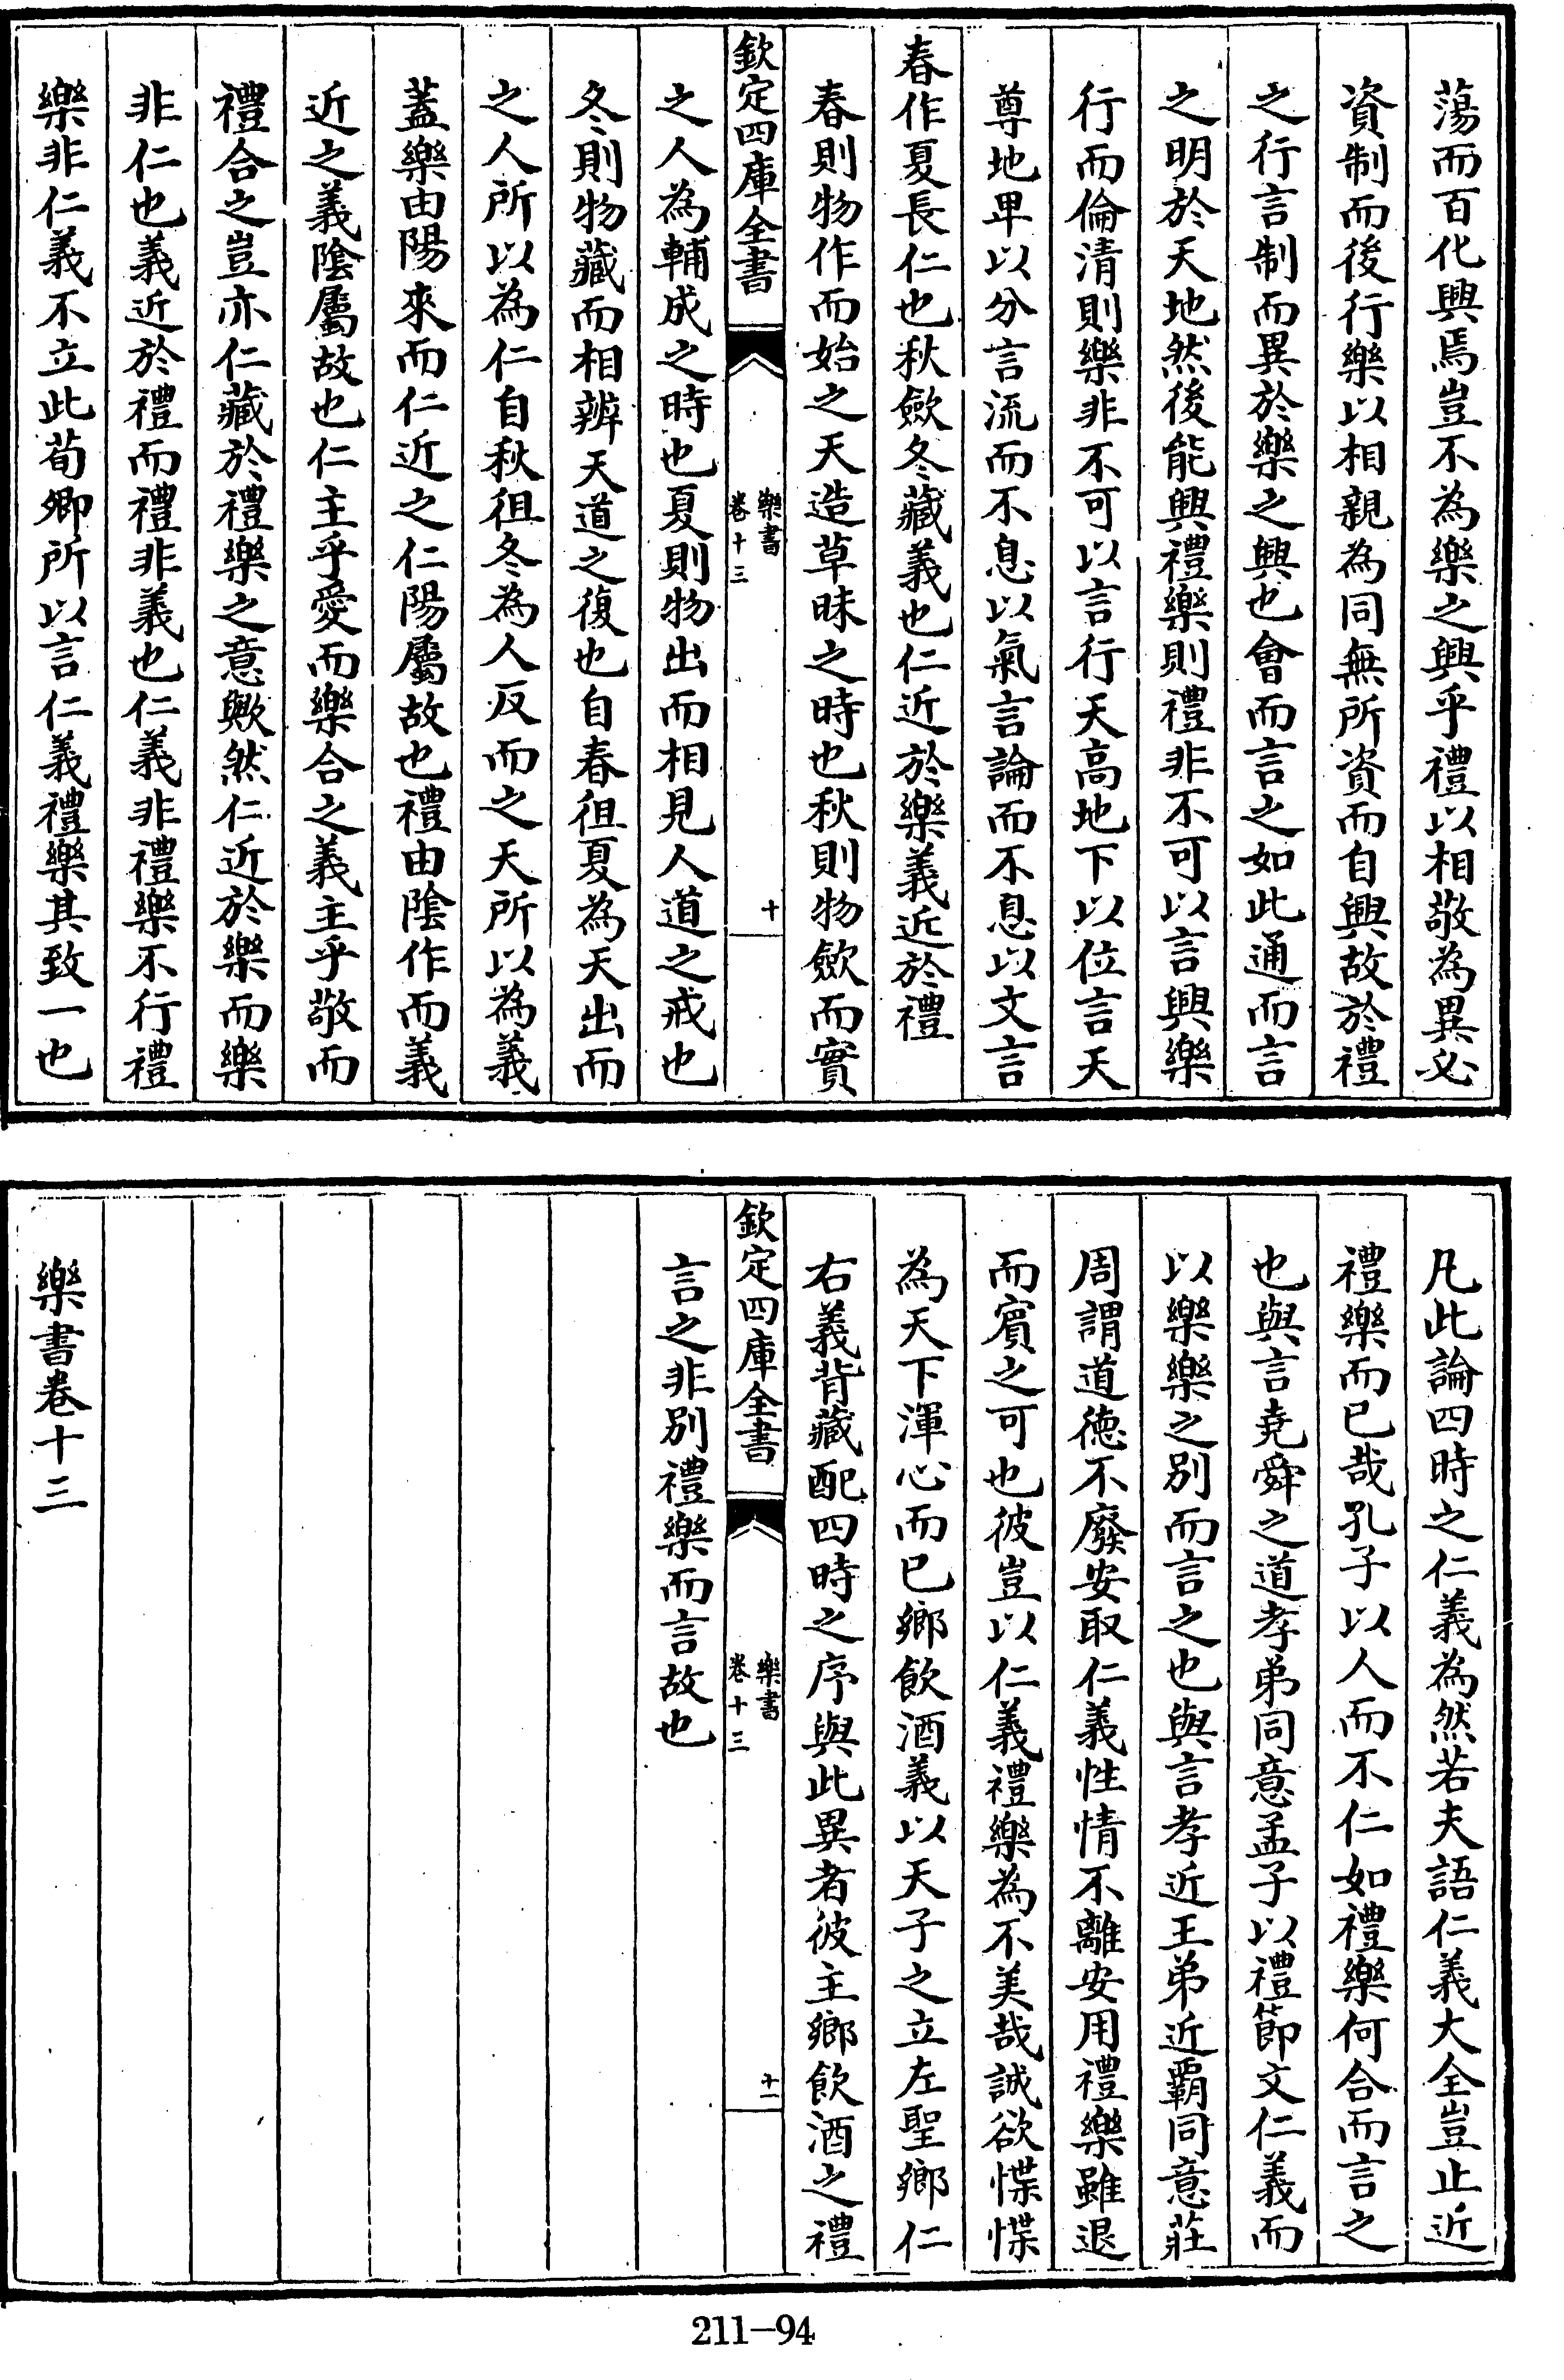 蕩而百化興焉豈不為樂之興乎禮以相敬為異必
資制而後行樂以相親為同無所資而自興故於禮
之行言制而異於樂之興也會而言之如此通而言
之明於天地然後能興禮樂則禮非不可以言興樂
行而倫清則樂非不可以言行天高地下以位言天
尊地卑以分言流而不息以氣言論而不息以文言
春作夏長仁也秋斂冬藏義也仁近於樂義近於禮
春則物作而始之天造草昧之時也秋則物斂而實
欽定四庫全書
樂書
卷十三
十
之人為輔成之時也夏則物出而相見人道之戒也
冬則物藏而相辨天道之復也自春徂夏為天出而
之人所以為仁自秋徂冬為人反而之天所以為義
蓋樂由陽來而仁近之仁陽屬故也禮由陰作而義
近之義陰屬故也仁主乎愛而樂合之義主乎敬而
禮合之豈亦仁藏於禮樂之意歟然仁近於樂而樂
非仁也義近於禮而禮非義也仁義非禮樂不行禮
樂非仁義不立此荀卿所以言仁義禮樂其致一也
凡此論四時之仁義為然若夫語仁義大全豈止近
禮樂而已哉孔子以人而不仁如禮樂何合而言之
也與言堯舜之道孝弟同意孟子以禮節文仁義而
以樂樂之別而言之也與言孝近王弟近霸同意莊
周謂道德不廢安取仁義性情不離安用禮樂雖退
而賓之可也彼豈以仁義禮樂為不美哉誠欲惵惵
為天下渾心而已鄉飲酒義以天子之立左聖鄉仁
右義背藏配四時之序與此異者彼主鄉飲酒之禮
欽定四庫全書
樂書
卷十三
十一
言之非別禮樂而言故也
樂書卷十三
211-94